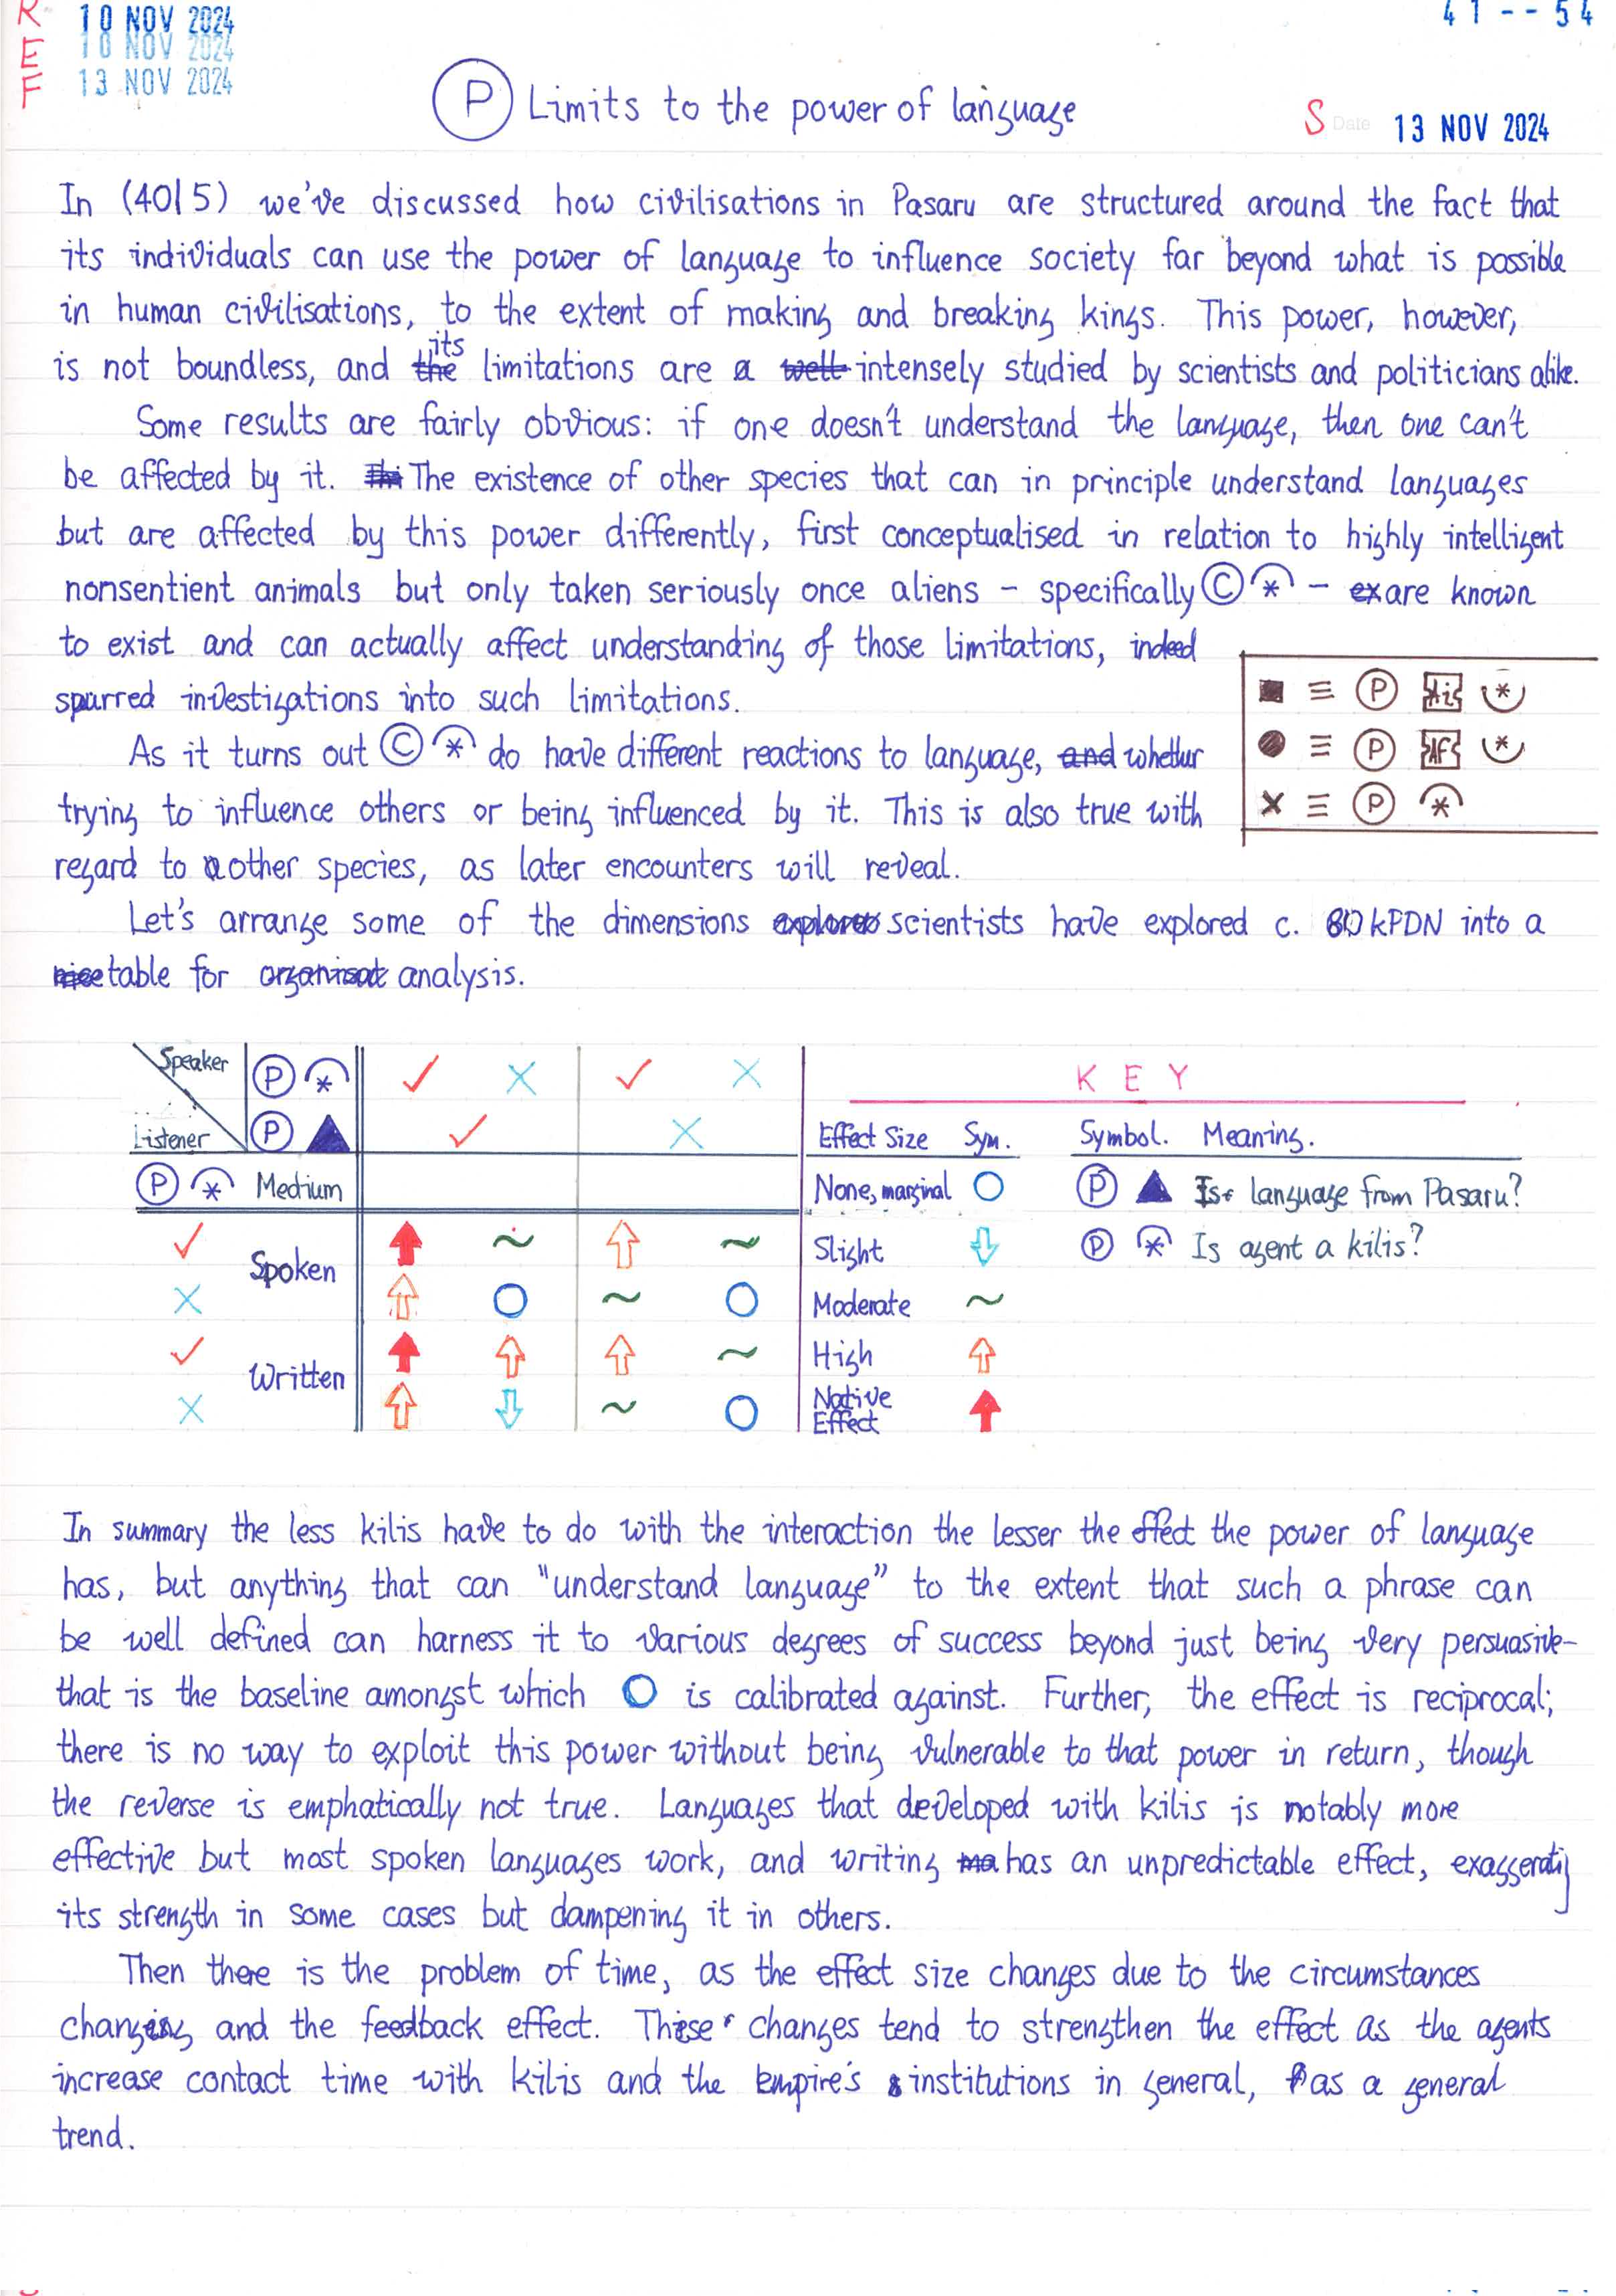 R
E
F
10 NOV 2024
10 NOV 2024
13 NOV 2024
41--54
P Limits to the power of language
S Date 13 NOV 2024
In (40|5) we've discussed how civilisations in Pasaru are structured around the fact that
its individuals can use the power of language to influence society far beyond what is possible
in human civilisations, to the extent of making and breaking kings. This power, however,
is not boundless, and its limitations are intensely studied by scientists and politicians alike.
Some results are fairly obvious: if one doesn't understand the language, then one can't
be affected by it. The existence of other species that can in principle understand languages
but are affected by this power differently, first conceptualised in relation to highly intelligent
nonsentient animals but only taken seriously once aliens – specifically © * – are known
to exist and can actually affect understanding of those limitations, indeed
spurred investigations into such limitations.
■ ≡ P Ai *
● ≡ P AF *
× ≡ P *
As it turns out © * do have different reactions to language, whether
trying to influence others or being influenced by it. This is also true with
regard to other species, as later encounters will reveal.
Let's arrange some of the dimensions scientists have explored c. 80kPDN into a
table for analysis.
Speaker P * ✓ × ✓ ×
Listener P ▲ ✓ ×
P * Medium
✓ × Spoken
✓ × Written
KEY
Effect Size Sym. Symbol. Meaning.
None, marginal ○ P ▲ Is language from Pasaru?
Slight ⇩ P * Is agent a kilis?
Moderate ~
High ⇧
Native
Effect ⬆
In summary the less kilis have to do with the interaction the lesser the effect the power of language
has, but anything that can "understand language" to the extent that such a phrase can
be well defined can harness it to various degrees of success beyond just being very persuasive–
that is the baseline amongst which ○ is calibrated against. Further, the effect is reciprocal;
there is no way to exploit this power without being vulnerable to that power in return, though
the reverse is emphatically not true. Languages that developed with kilis is notably more
effective but most spoken languages work, and writing has an unpredictable effect, exaggerating
its strength in some cases but dampening it in others.
Then there is the problem of time, as the effect size changes due to the circumstances
changing and the feedback effect. These changes tend to strengthen the effect as the agents
increase contact time with kilis and the empire's institutions in general, as a general
trend.